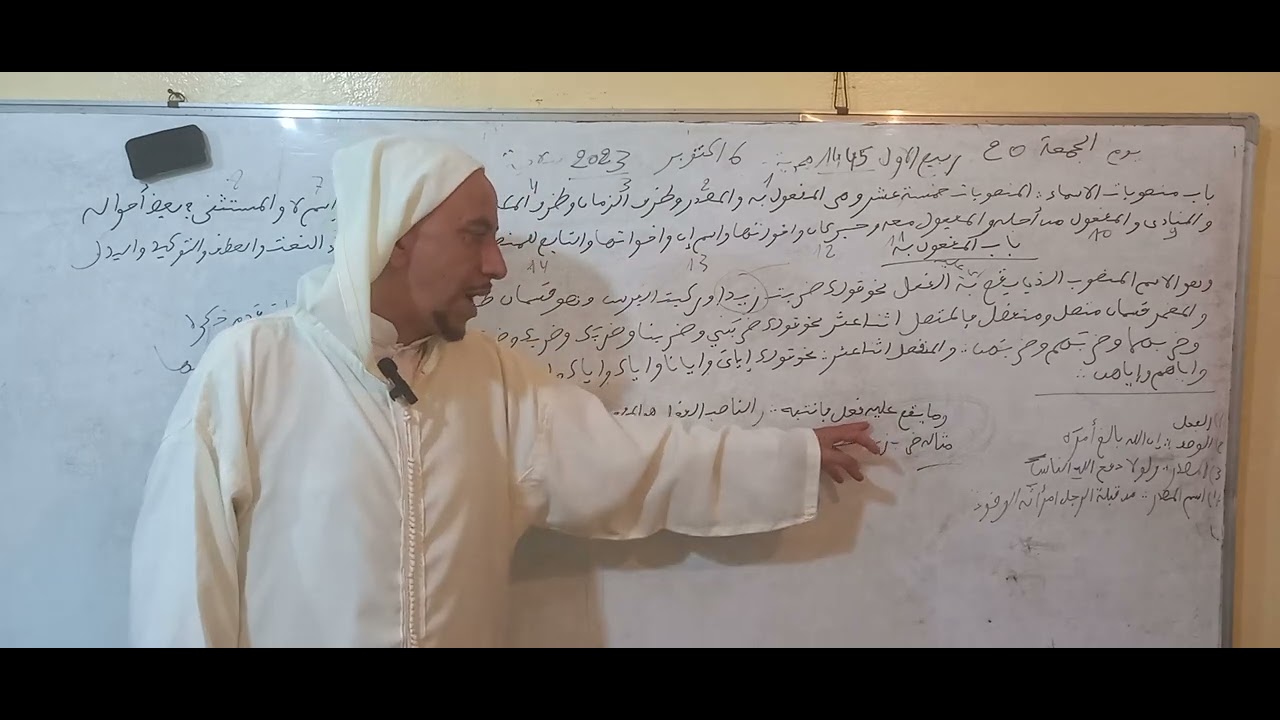 يوم الجمعة 20 ربيع الاول 1445 هجرية 6 اكتوبر 2023
باب منصوبات الاسماء: المنصوبات خمسة عشر وهي المفعول به والمصدر وظرف الزمان وظرف اسم لا والمستثنى في بعض أحواله
والمنادى والمفعول من أجله والمفعول معه وخبر كان واخواتها واسم إن واخواتها والتابع النعت والعطف والتوكيد والبدل
باب المفعول به
وهو الاسم المنصوب الذي يقع به الفعل نحو قولك ضربت زيدا وركبت الفرس وهو قسمان تقدم ذكره
والمضمر قسمان متصل ومنفصل فالمتصل اثنا عشر نحو قولك ضربني وضربنا وضربك وضربك
وضربهما وضربهم وضربهن.. والمنفصل اثنا عشر: نحو قولك إياي وايانا واياك واياك
واياهم وإياهن..
وما يقع عليه فعل فانتبه.. الناصب
مثاله
1) الفعل
2) الوصف: إن الله بالغ أمره
3) المصدر: ولولا دفع الله الناس
4) اسم المصدر.. من قبلة الرجل امرأته الوضوء